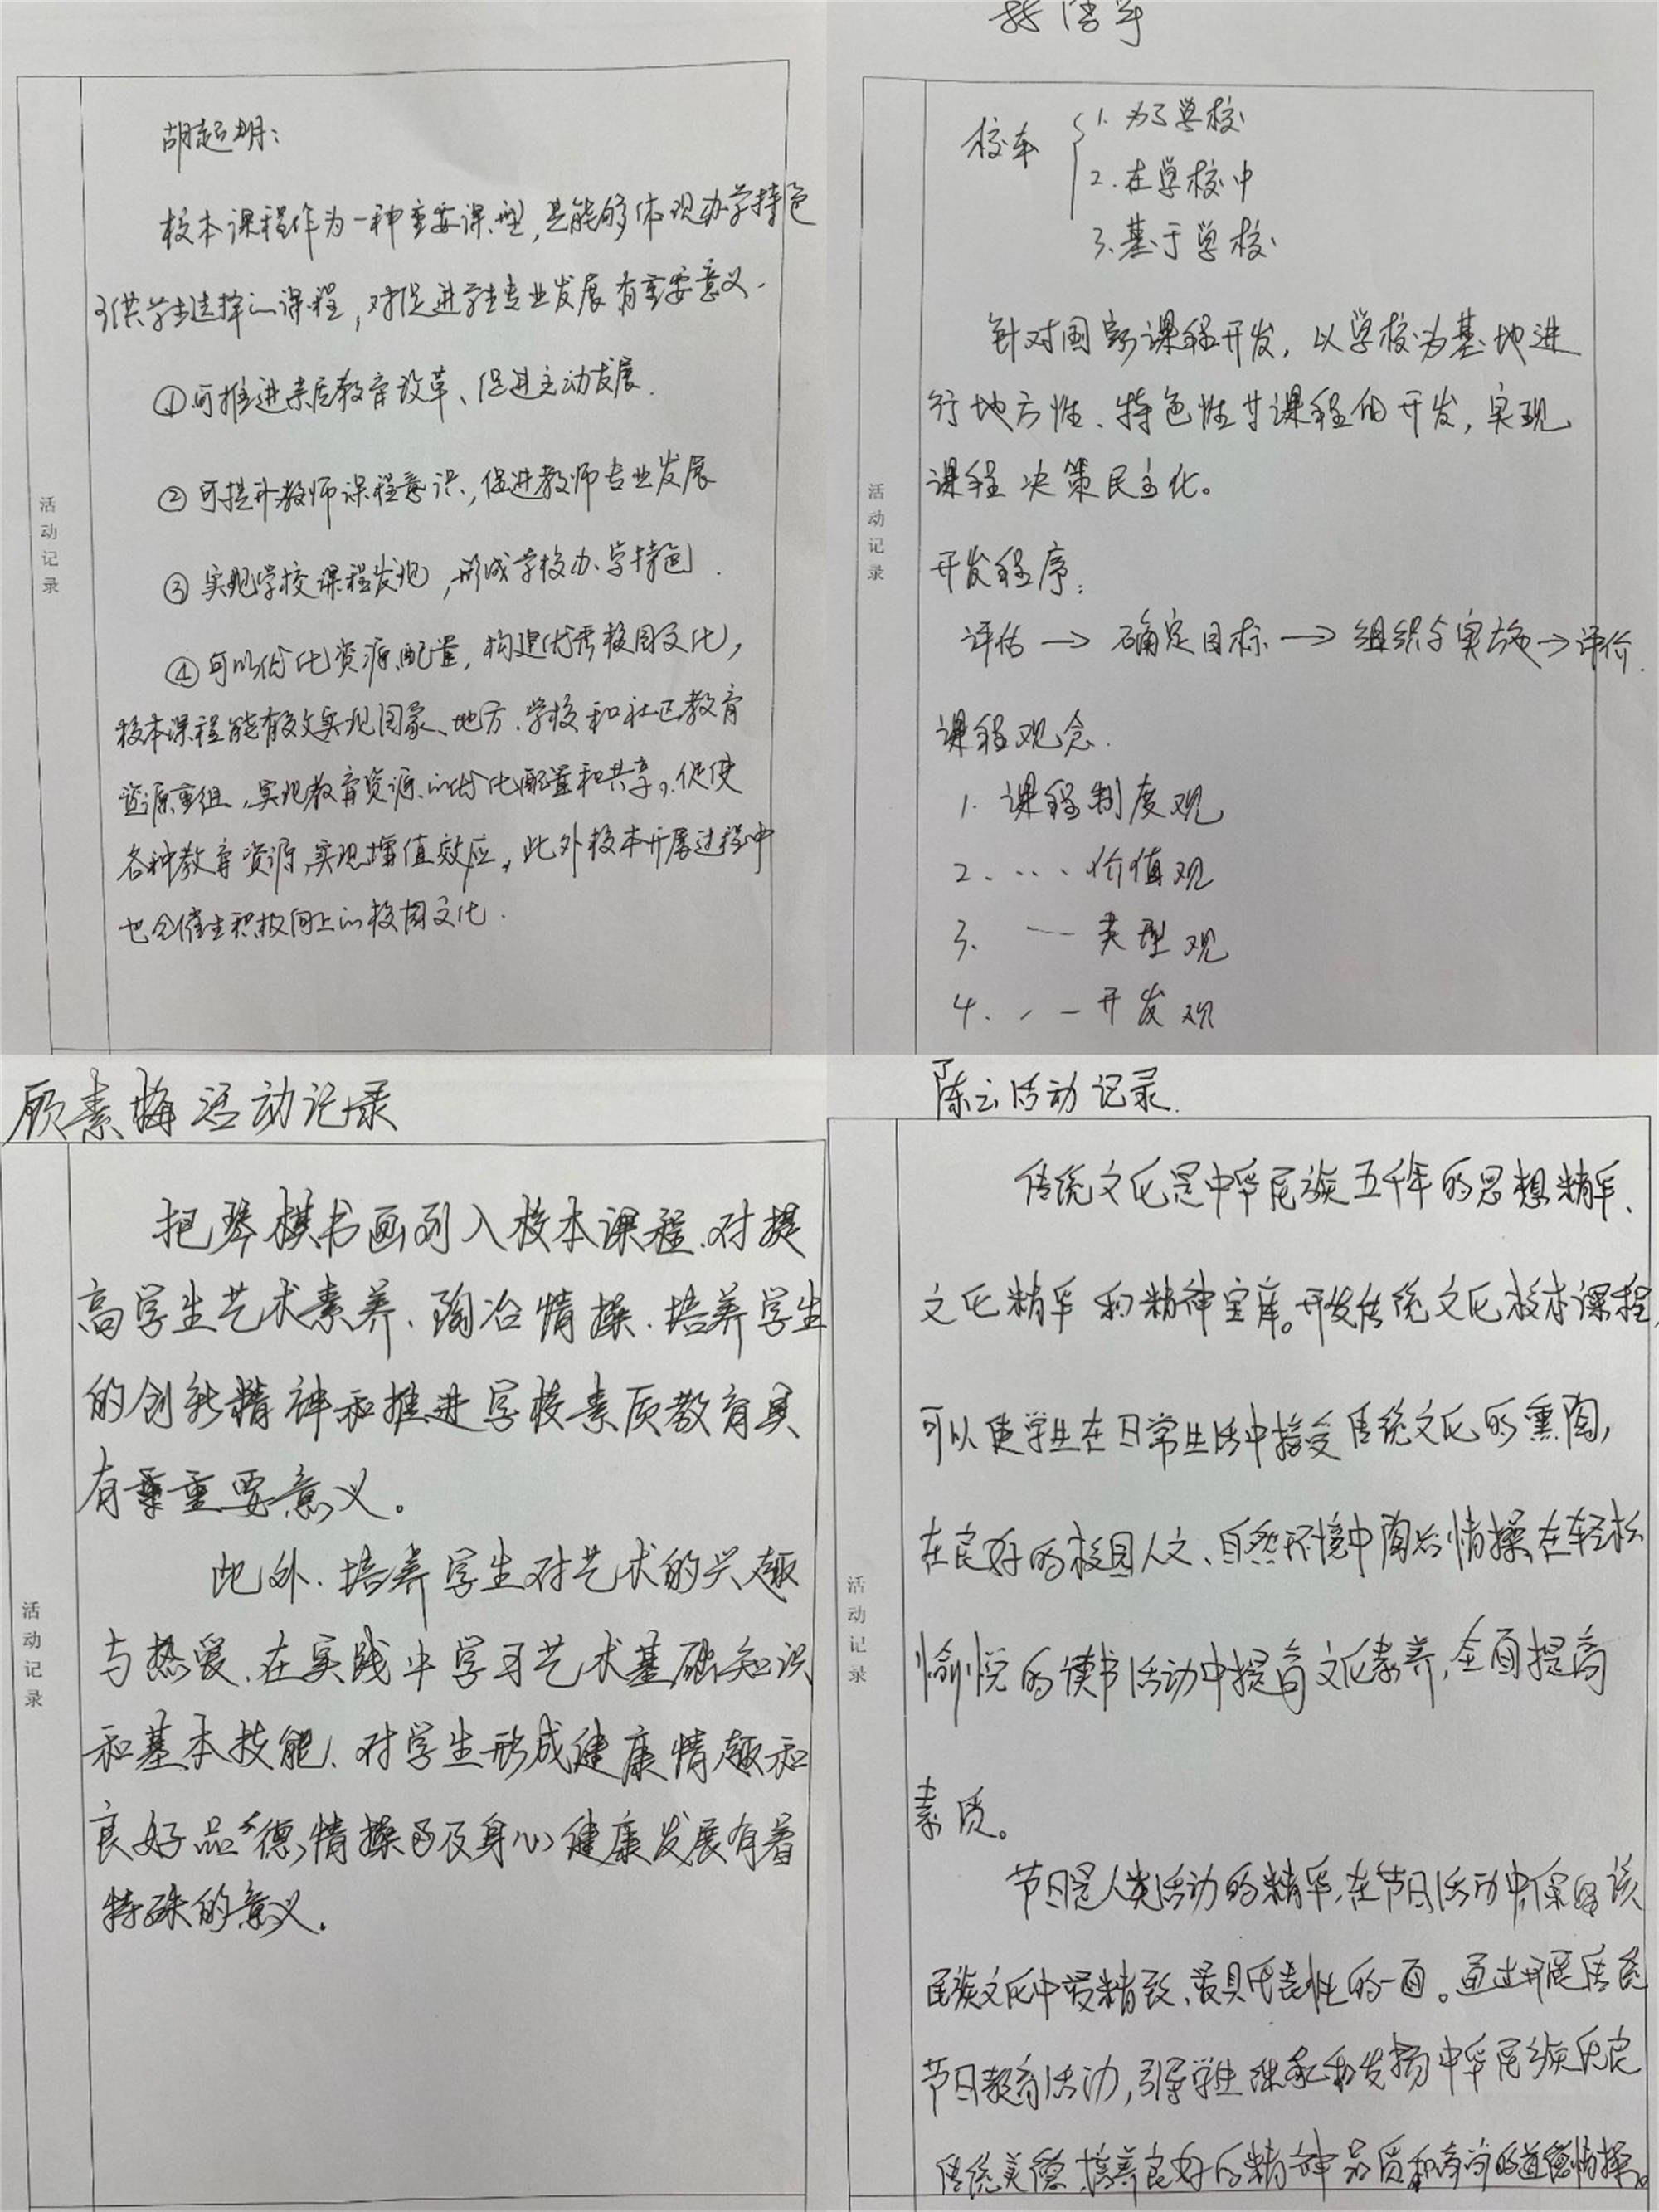 胡起明：
校本课程作为一种重要课型，是能够体现办学特色
引供学生选择的课程，对促进学生专业发展有重要意义.
①可推进素质教育改革、促进主动发展.
②可提升教师课程意识，促进教师专业发展
③实现学校课程发现，形成学校办学特色.
④可以优化资源配置，构建优秀校园文化，
校本课程能有效实现国家、地方.学校和社区教育
资源重组，实现教育资源的优化配置和共享，促使
各种教育资源实现增值效应，此外校本开展过程中
也会催生积极向上的校园文化.
活动记录
校本
1.为了学校
2.在学校中
3.基于学校
针对国家课程开发，以学校为基地进
行地方性、特色性廿课程的开发，实现
课程决策民主化。
开发程序：
评估→确定目标→组织与实施→评价.
课程观念.
1.课程制度观
2.…价值观
3.一一类型观
4.、一开发观
活动记录
顾素梅活动记录
把琴棋书画列入校本课程.对提
高学生艺术素养、陶冶情操.培养学生
的创新精神和推进学校素质教育具
有重要意义。
此外.培养学生对艺术的兴趣
与热爱、在实践中学习艺术基础知识
和基本技能、对学生形成健康情趣和
良好品德,情操以及身心健康发展有着
特殊的意义.
活动记录
陈云活动记录.
传统文化是中华民族五千年的思想精华、
文化精华和精神宝库。开发传统文化校本课程,
可以使学生在日常生活中接受传统文化的熏陶,
在良好的校园人文、自然环境中陶冶情操,在轻松
愉悦的读书活动中提高文化素养,全面提高
素质。
节日是人类活动的精华,在节日活动中保留该
民族文化中最精致、最具代表性的一面。通过开展传统
节日教育活动,引导学生继承和发扬中华民族优良
传统美德,培养良好的精神品质和高尚的道德情操。
活动记录